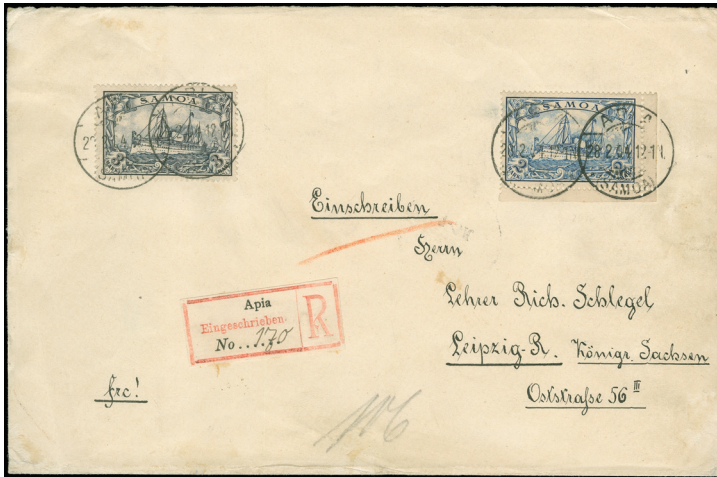 SAMOA
3 3
SAMOA
2 2
APIA
28.2.04 12-1
SAMOA
Einschreiben
Herrn
Lehrer Rich. Schlegel
Leipzig-R. Königr. Sachsen
Oststraße 56 III
Apia
Eingeschrieben.
No...170
R
frc!